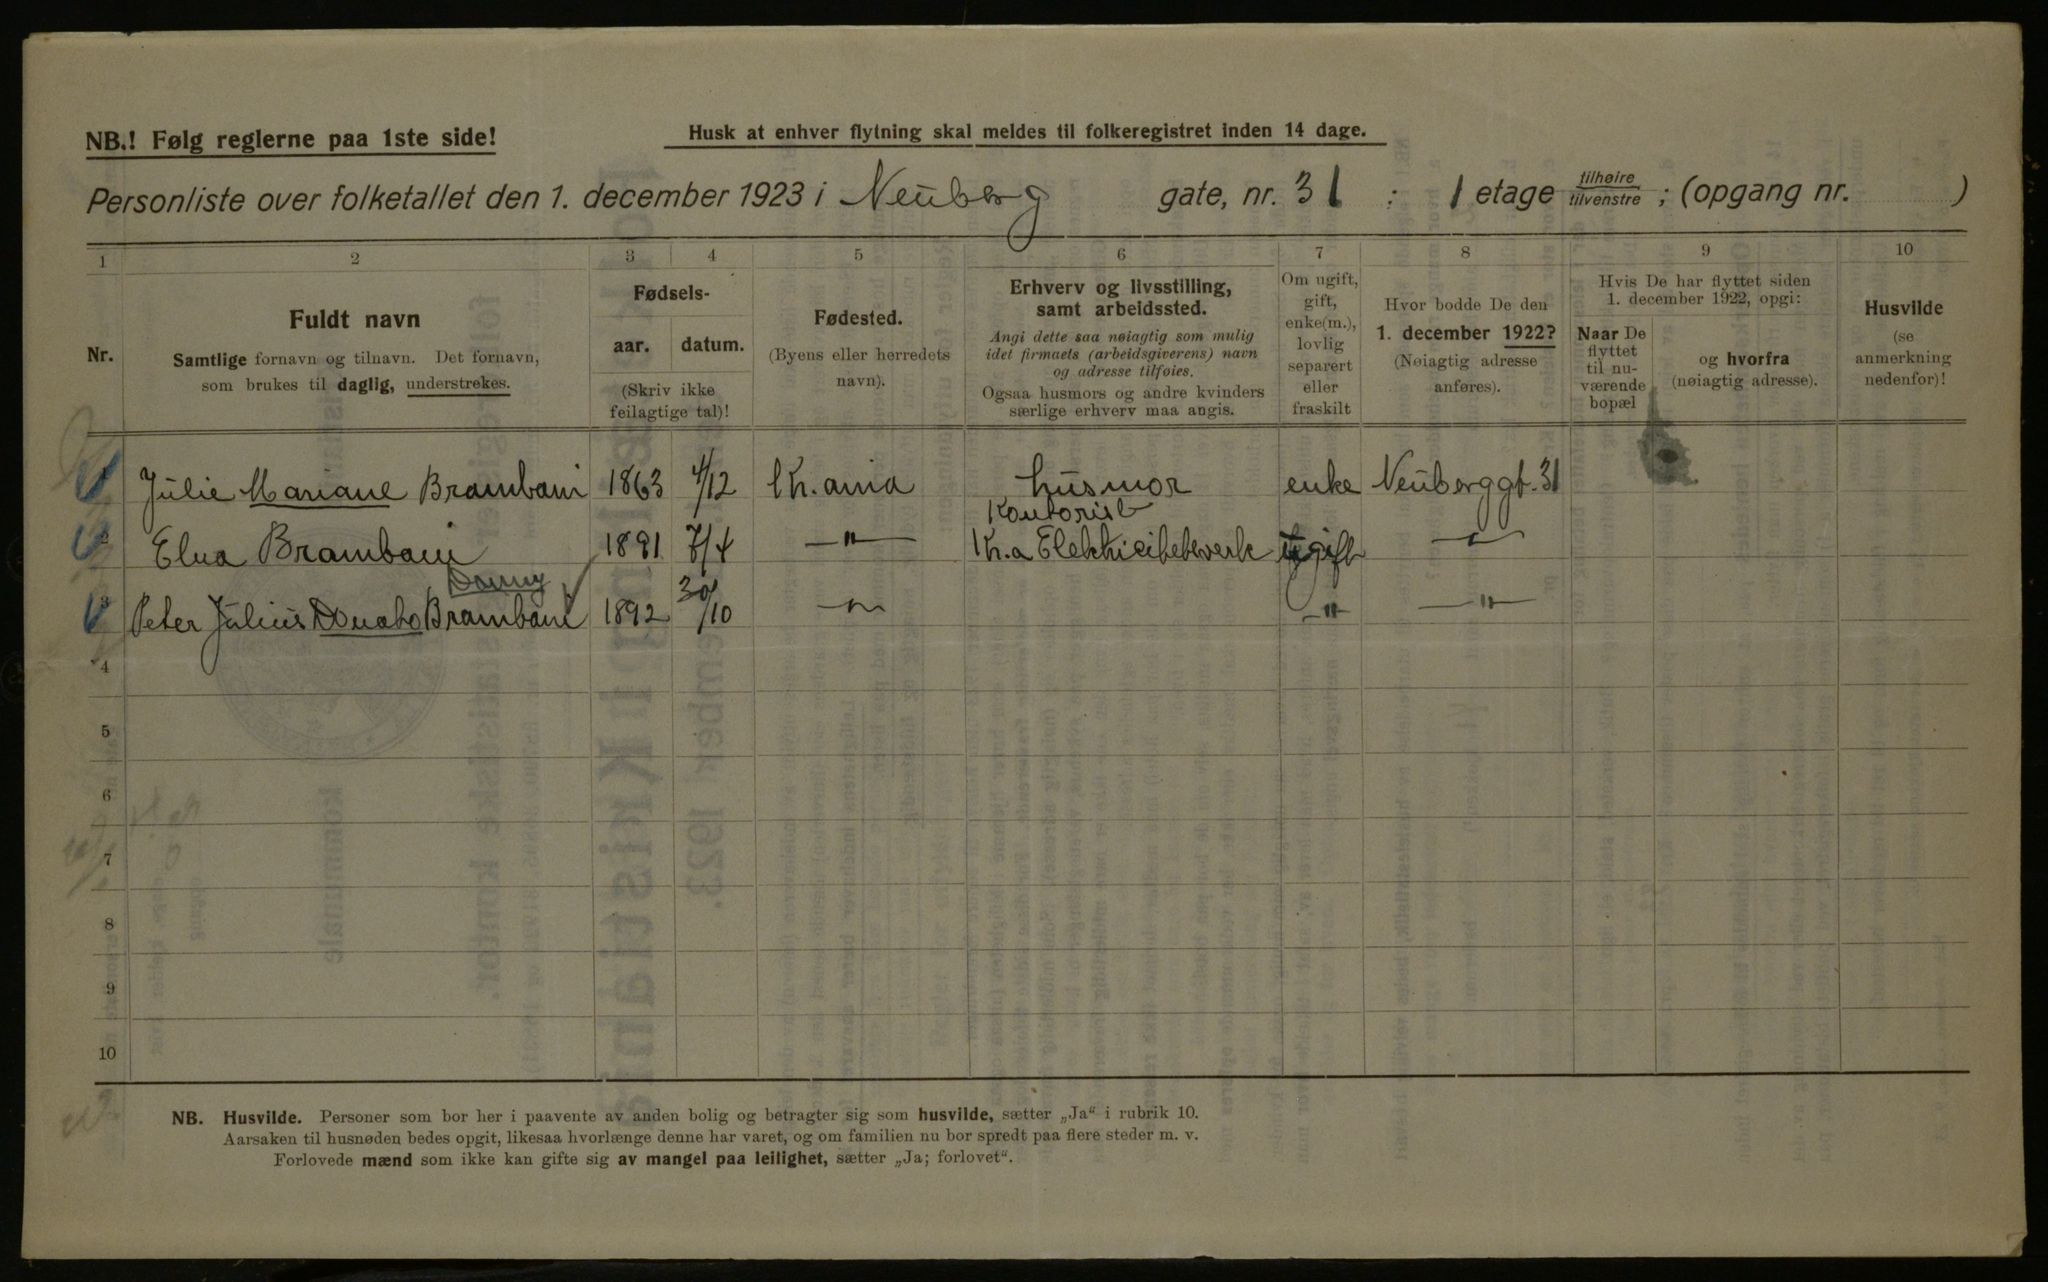 NB.! Følg reglerne paa 1ste side!
Husk at enhver flytning skal meldes til folkeregistret inden 14 dage.
Personliste over folketallet den 1. december 1923 i Neuberg gate, nr. 31 : 1 etage tilhøire tilvenstre ; (opgang nr. )
1 2 3 4 5 6 7 8 9 10
Nr.
Fuldt navn
Samtlige fornavn og tilnavn. Det fornavn,
som brukes til daglig, understrekes.
Fødsels-
aar. datum.
(Skriv ikke
feilagtige tal)!
Fødested.
(Byens eller herredets
navn).
Erhverv og livsstilling,
samt arbeidssted.
Angi dette saa nøiagtig som mulig
idet firmaets (arbeidsgiverens) navn
og adresse tilføies.
Ogsaa husmors og andre kvinders
særlige erhverv maa angis.
Om ugift,
gift,
enke(m.),
lovlig
separert
eller
fraskilt
Hvor bodde De den
1. december 1922?
(Nøiagtig adresse
anføres).
Hvis De har flyttet siden
1. december 1922, opgi:
Naar De
flyttet
til nu-
værende
bopæl
og hvorfra
(nøiagtig adresse).
Husvilde
(se
anmerkning
nedenfor)!
1 Julie Mariane Brambani 1863 4/12 Kr.ania husmor enke Neuberggt. 31
Kontorist
2 Elna Brambani 1891 7/4 —"— Kr.a Elektricitetsverk ugift —"—
Donny
3 Peter Julius Donato Brambani 1892 30/10 —"— —"— —"—
4
5
6
7
8
9
10
NB. Husvilde. Personer som bor her i paavente av anden bolig og betragter sig som husvilde, sætter „Ja“ i rubrik 10.
Aarsaken til husnøden bedes opgit, likesaa hvorlænge denne har varet, og om familien nu bor spredt paa flere steder m. v.
Forlovede mænd som ikke kan gifte sig av mangel paa leilighet, sætter „Ja; forlovet“.